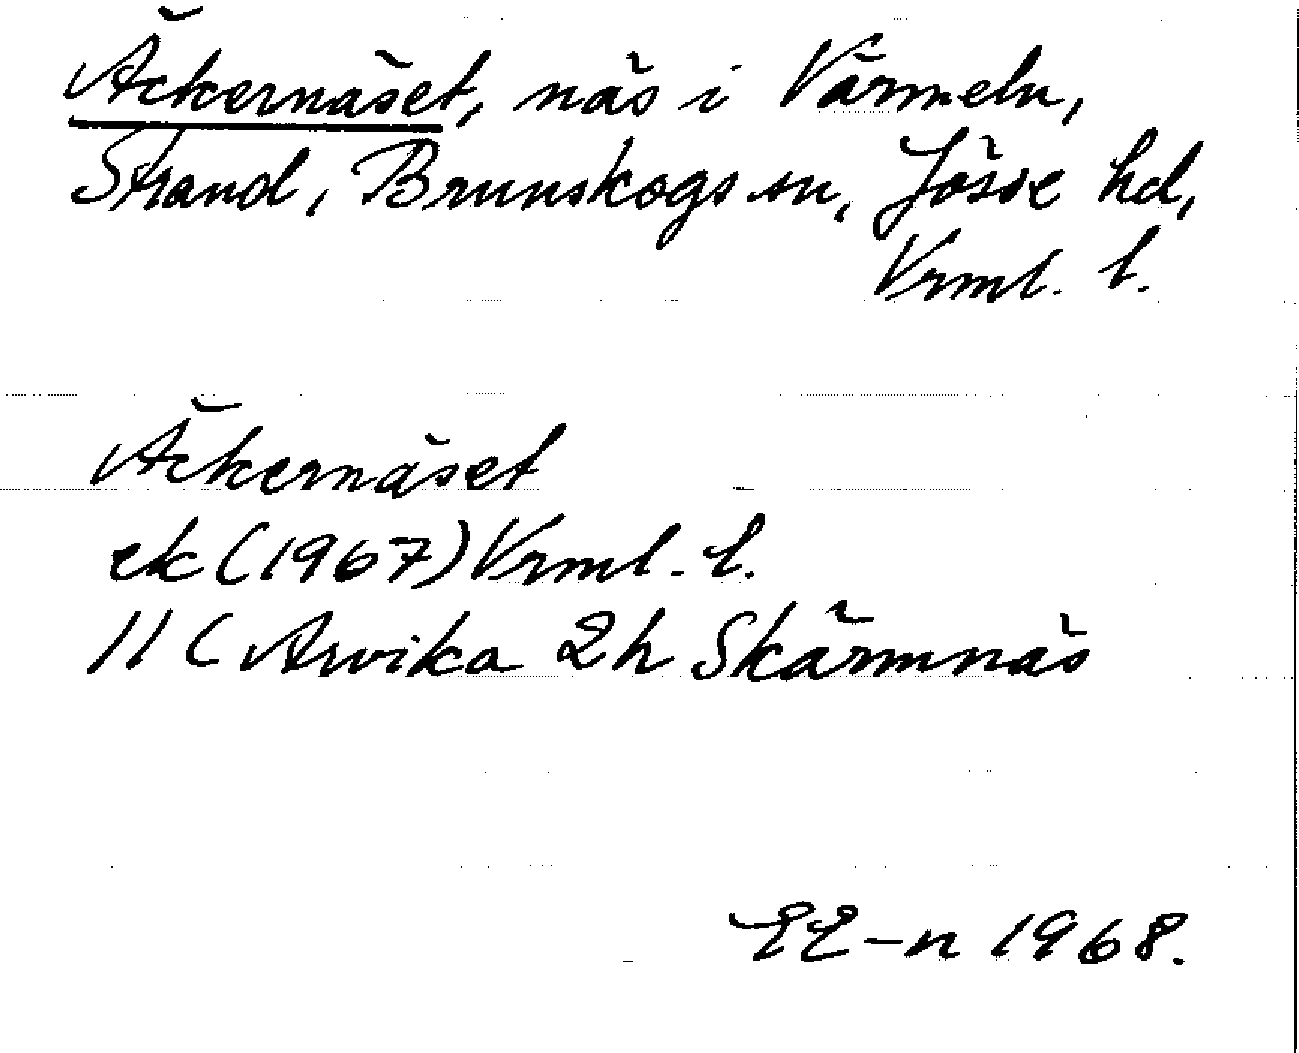 Äckernäset, näs i Värmeln,
Strand, Brunskogs sn, Jösse hd,
Vrml. l.
Äckernäset
ek (1967) Vrml. l.
11 C Arvika 2h Skärmnäs
EE-n 1968.